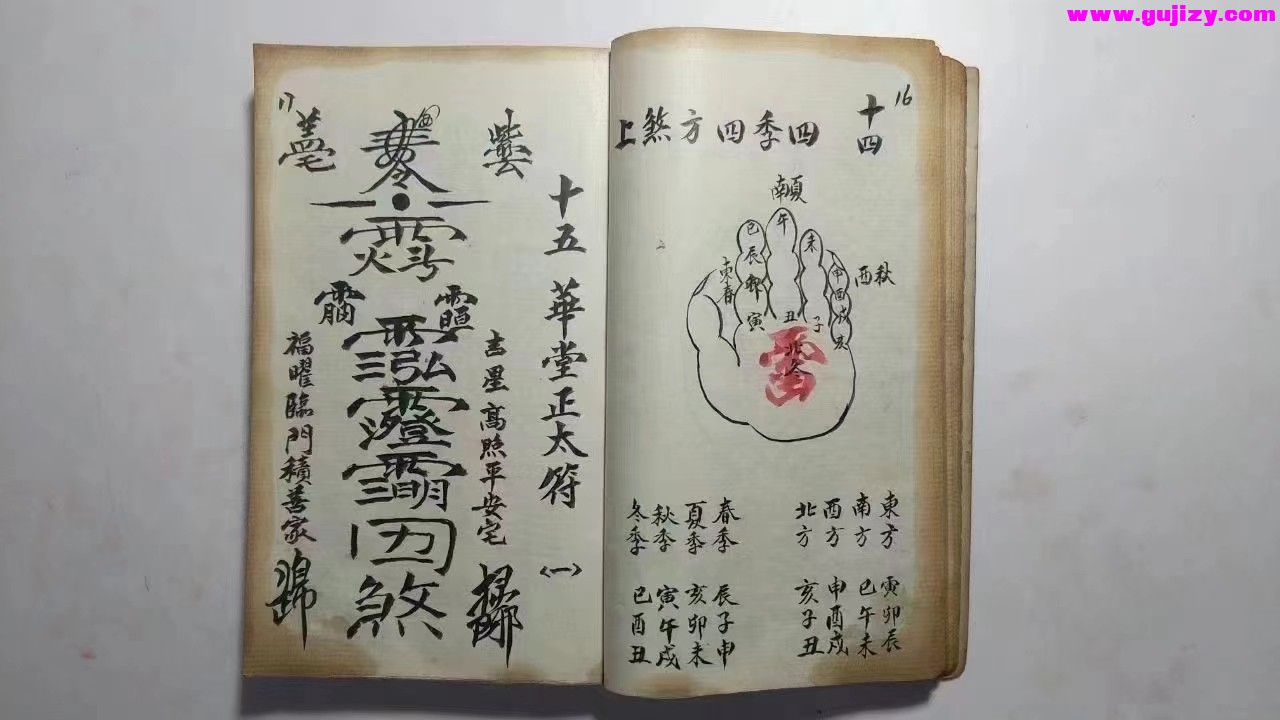 www.gujizy.com
16
十四
四季四方煞上
南夏
午
巳辰卯寅
未
申酉戌亥
丑
子
東春
西秋
北冬
東方 寅卯辰
南方 巳午未
西方 申酉戌
北方 亥子丑
春季 辰子申
夏季 亥卯未
秋季 寅午戌
冬季 巳酉丑
17
十五 華堂正太符 〈一〉
吉星高照平安宅
煞
福曜臨門積善家